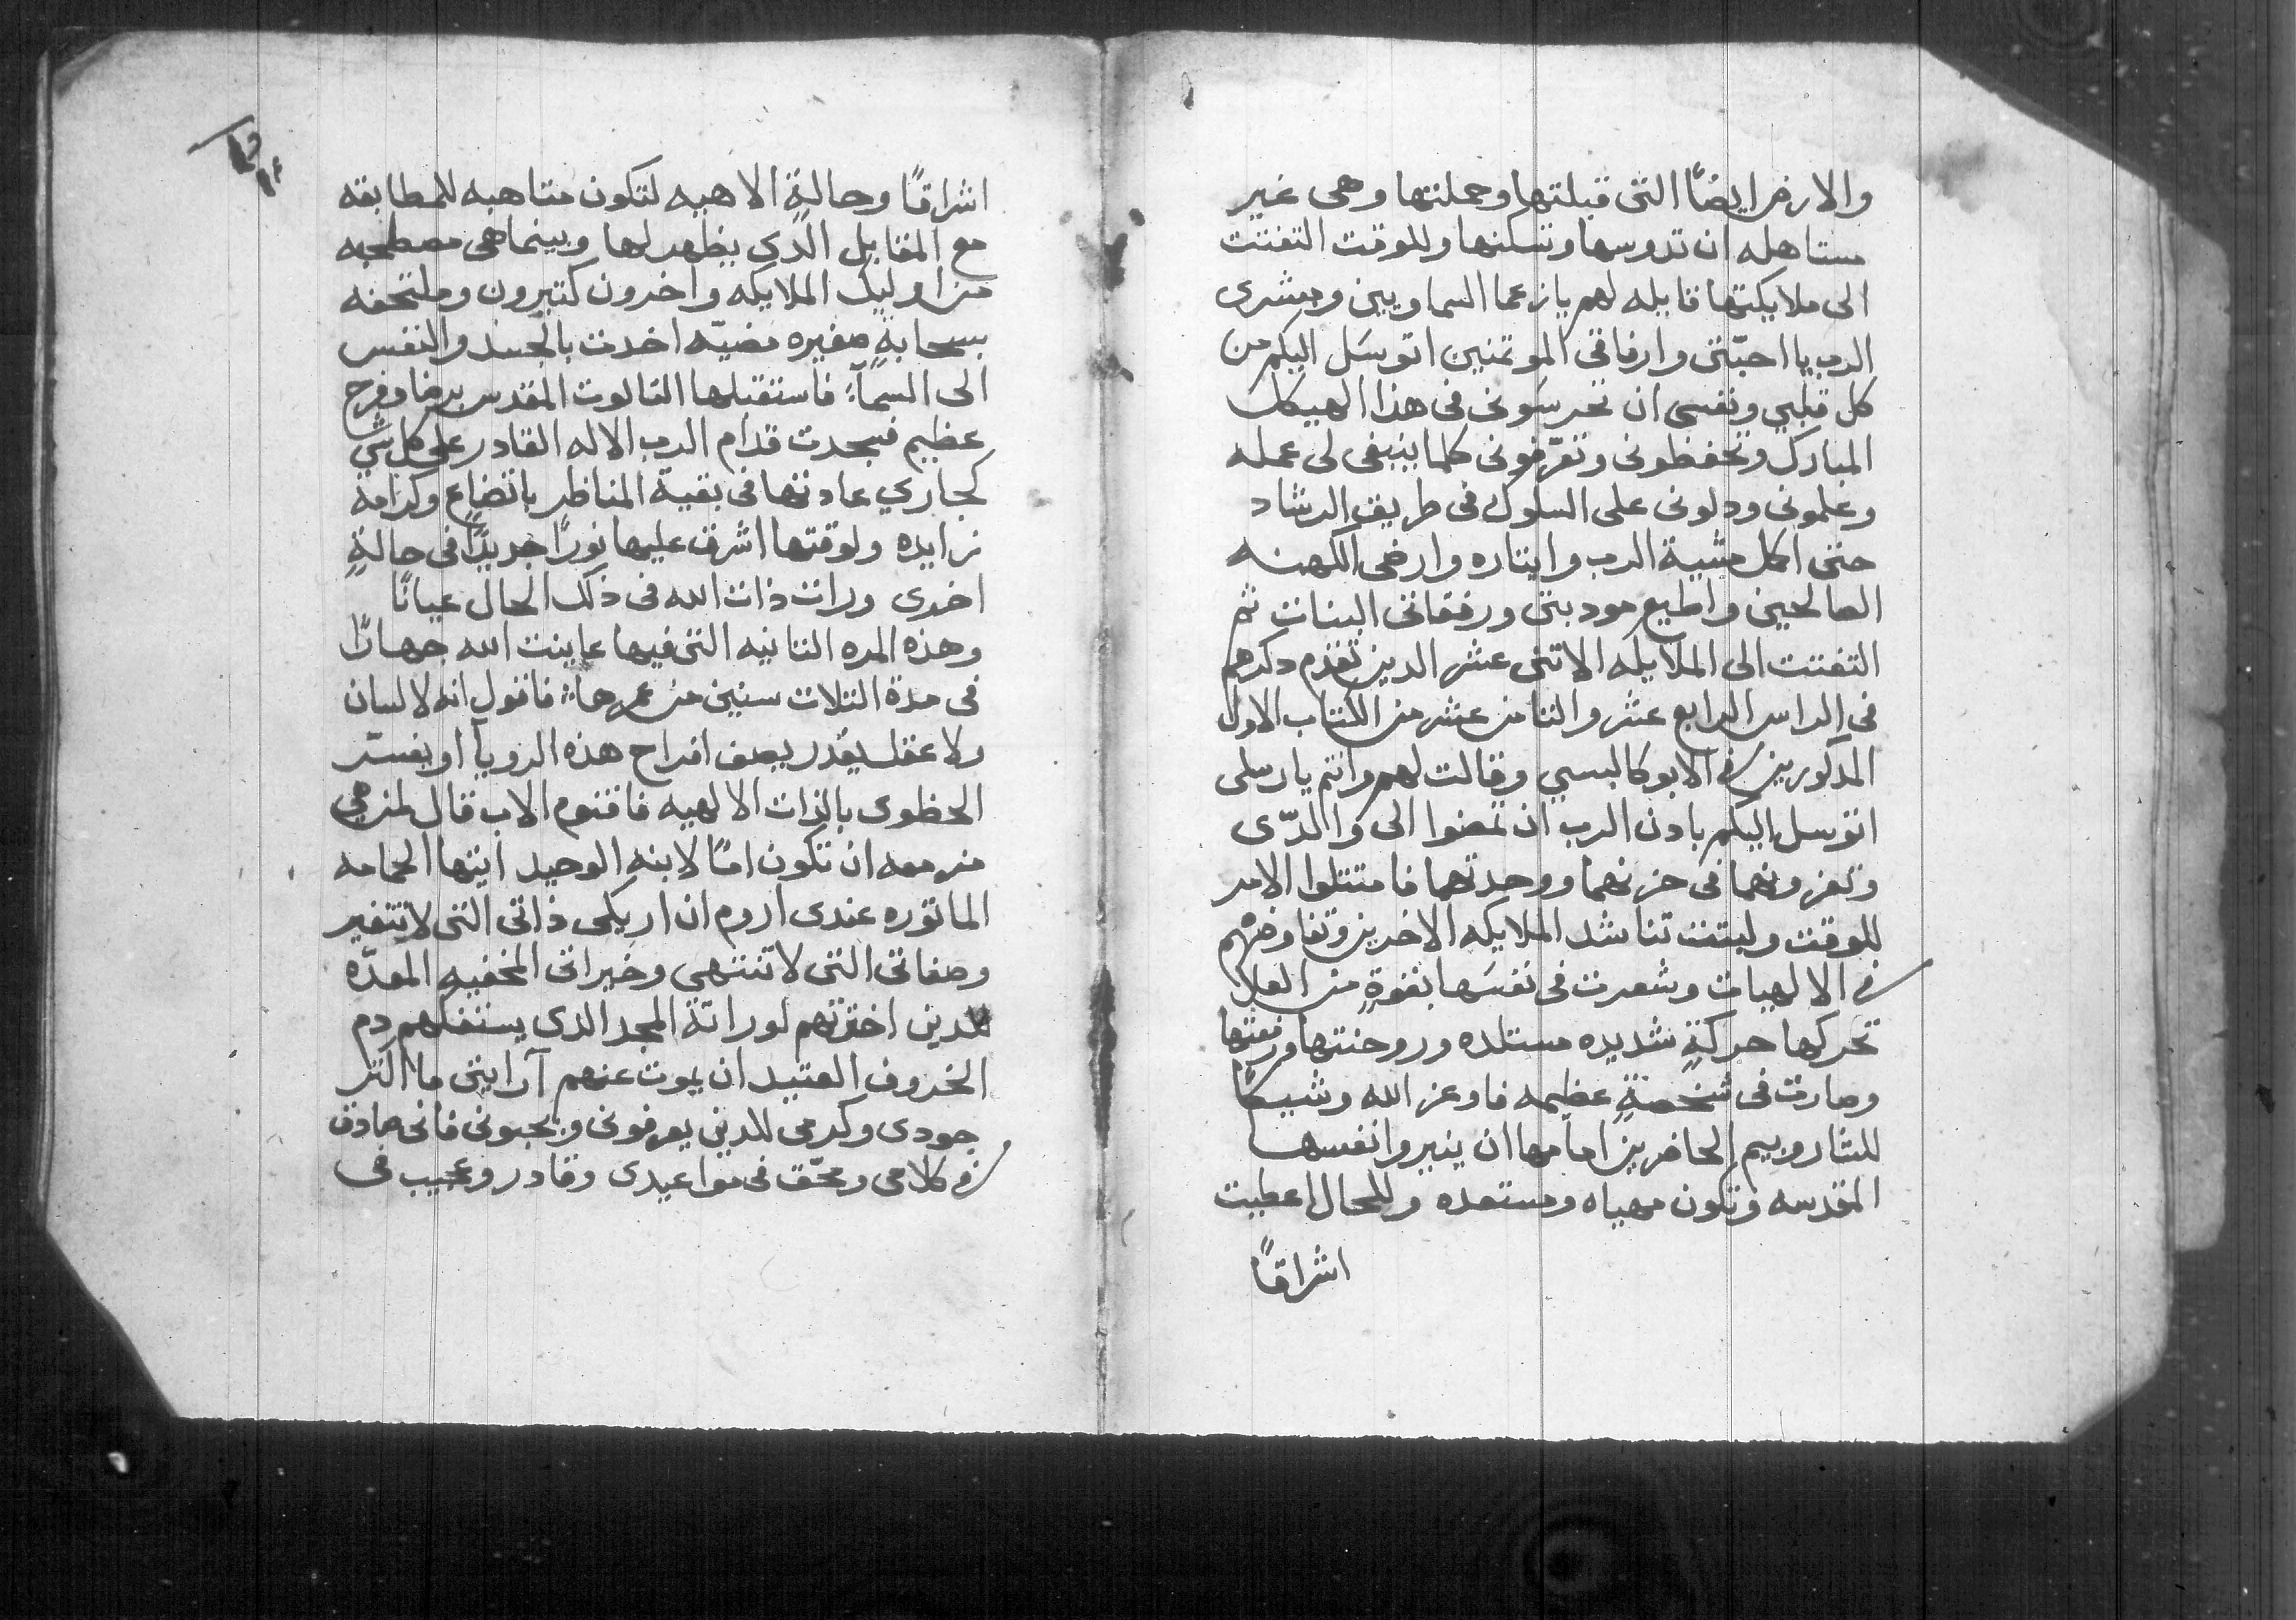 والارض ايضًا التى قبلتها وحملتها وهى غير
مستاهله ان تدوسها وتسكنها وللوقت التفتت
الى ملايكتها قايله لهم يا زعما السماويين ومبشرى
الرب يا احبّتى وارفاقى الموتمنين اتوسَل اليكم من
كل قلبي ونفسى ان تحرسَونى فى هذا الهيكل
المبارك وتحفظونى وتعرّفونى كلما ينبغى لى عمله
وعلمونى ودلونى على السلوك فى طريق الرشاد
حتى اكمل مشية الرب وايتاره وارضى الكهنه
الصالحين واطيع مودبتى ورفقاتى البنات ثم
التفتت الى الملايكه الاتنى عشر الدين تقدم دكرهم
فى الراس الرابع عشر والتامن عشر من الكتاب الاول
المدكورين فى الابوكالبسي وقالت لهم وانتم يا رسلى
اتوسل اليكم بادن الرب ان تمضوا الى والدّى
وتعزونهما فى حزنهما ووحدتهما فامتتلوا الامر
للوقت ولبتت تناشد الملايكه الاخرين وتفاوضهم
فى الالهيات وشعرت فى نفسَها بقوةٍ من العلا
تحركها حركةٍ شديده مستلده وروحنتها ورفعتها
وصارت فى شخصةٍ عظيمه فاوعز الله وشيكًا
للشاروبيم الحاضرين امامها ان ينيروا نفسها
المقدسه وتكون مهياه ومستعده وللحال اعطيت
اشراقًا
اشراقًا وحالةٍ الاهيه لتكون متاهبه للمطابقه
مع المقابل الدي يظهر لها وبينما هى مصطحبه
من اوليك الملايكه واخرون كتيرون وملتحفه
بسحابةٍ صغيره مضيّه اخدت بالجسد والنفس
الى السمآء فاستقبلها التالوت المقدس برضا وفرح
عظيم فسجدت قدام الرب الاله القادر على كل شي
كجاري عادتها فى بقية المناظر باتضاع وكرامة
زايده ولوقتها اشرق عليها نورًا جديدًا فى حالةٍ
اخرى ورات ذات الله فى ذلك الحال عيانًا
وهذه المره التانيه التى فيها عاينت الله جهارًا
فى مدة التلات سنين من عمرها فاقول انه لا لسان
ولا عقل يقدر يصف افراح هذه الرويآ او يفسّر
الحظوى بالذات الالهيه فاقنوم الاب قال لمن هي
مزمعه ان تكون امًا لابنه الوحيد ايتها الحمامه
الماتوره عندى اروم ان اريكى ذاتى التى لا تتغير
وصفاتى التى لا تنتهى وخيراتى المخفيه المعدّه
للدين اخترتهم لوراتة المجد الدى يستفكهم دم
الخروف العتيد ان يموت عنهم آرايتى ما اكتر
جودى وكرمى للدين يعرفونى ويحبونى فانى صادق
فى كلامى ومحّق فى مواعيدى وقادر وعجيب فى